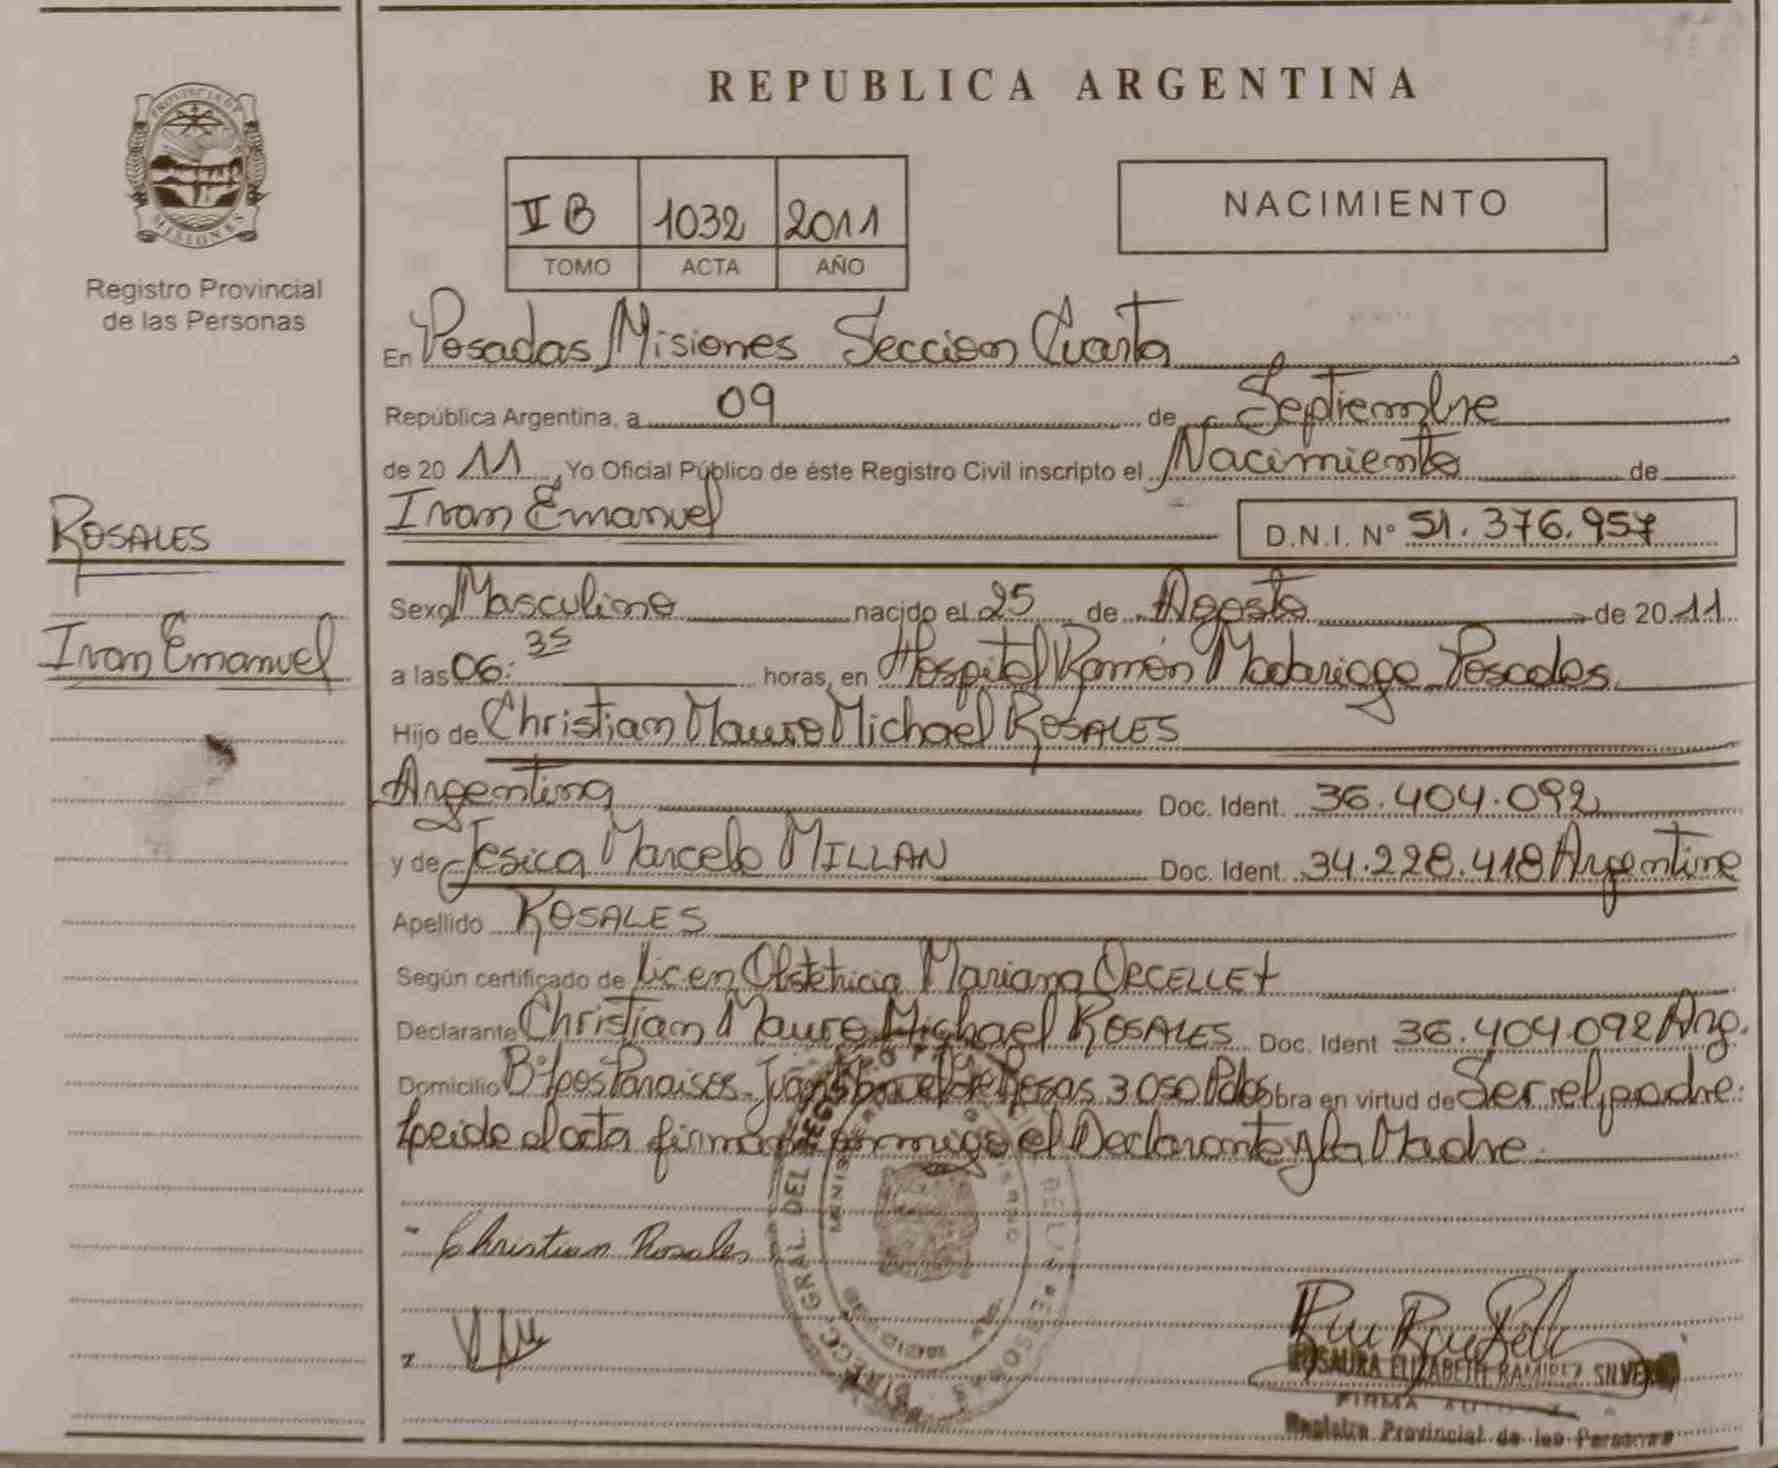 PROVINCIA DE
MISIONES
Registro Provincial
de las Personas
ROSALES
Ivan Emanuel
REPUBLICA ARGENTINA
II B 1032 2011
TOMO ACTA AÑO
NACIMIENTO
En Posadas Misiones Seccion Cuarta
República Argentina, a 09 de Septiembre
de 20 11, Yo Oficial Público de éste Registro Civil inscripto el Nacimiento de
Ivan Emanuel D.N.I. Nº 51.376.957
Sexo Masculino nacido el 25 de Agosto de 20 11
a las 06:35 horas, en Hospital Ramón Madariaga Posadas
Hijo de Christian Mauro Michael ROSALES
Argentina Doc. Ident. 36.404.092
y de Jesica Marcela MILLAN Doc. Ident. 34.228.418 Argentina
Apellido ROSALES
Según certificado de Licen Obstetricia Mariana ORCELLET
Declarante Christian Mauro Michael ROSALES Doc. Ident 36.404.092 Arg.
Domicilio Bº Los Paraisos Juan Manuel de Rosas 3050 Pdas obra en virtud de Ser el padre.
Leida el acta firman conmigo el Declarante y la Madre.
Christian Rosales
ROSAURA ELIZABETH RAMIREZ SILVERO
FIRMA
Registro Provincial de las Personas